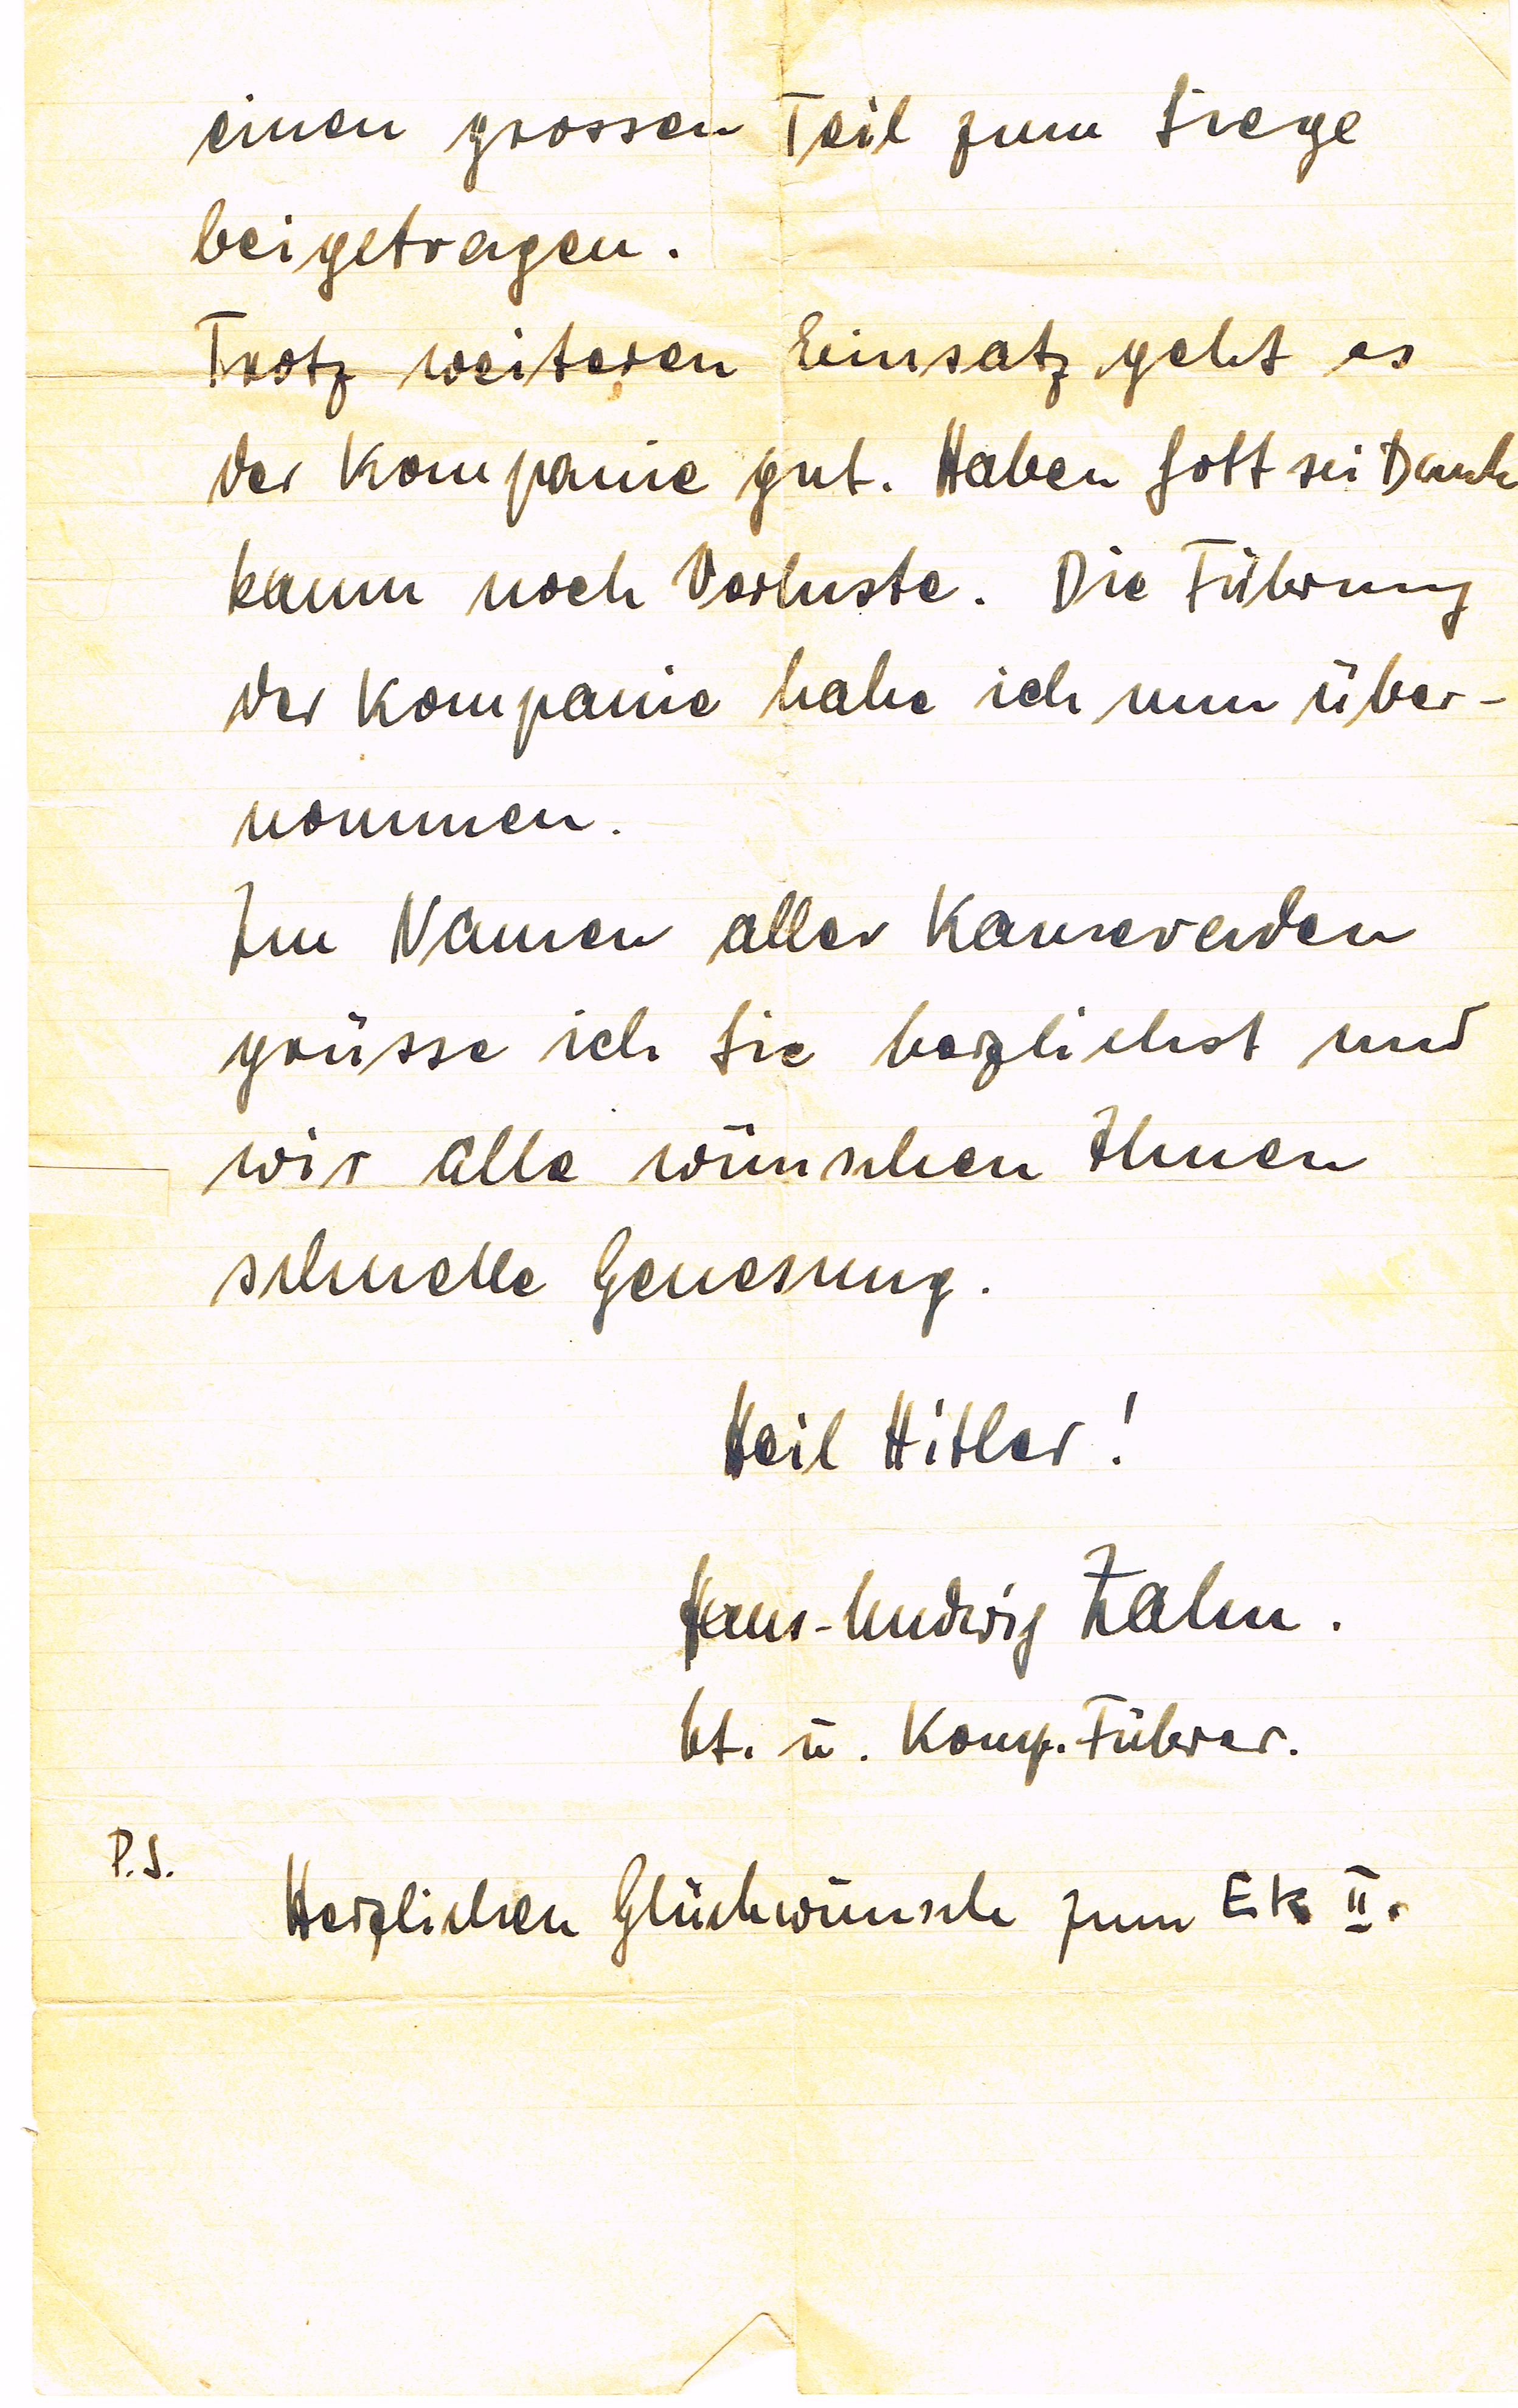 einen grossen Teil zum Siege
beigetragen.
Trotz weiteren Einsatz geht es
der Kompanie gut. Haben Gott sei Dank
kaum noch Verluste. Die Führung
der Kompanie habe ich nun über-
nommen.
Im Namen aller Kameraden
grüsse ich Sie herzlichst und
wir alle wünschen Ihnen
schnelle Genesung.
Heil Hitler!
Hans-Ludwig Zahn.
Lt. u. Komp. Führer.
P.S.
Herzlichen Glückwunsch zum EK II.